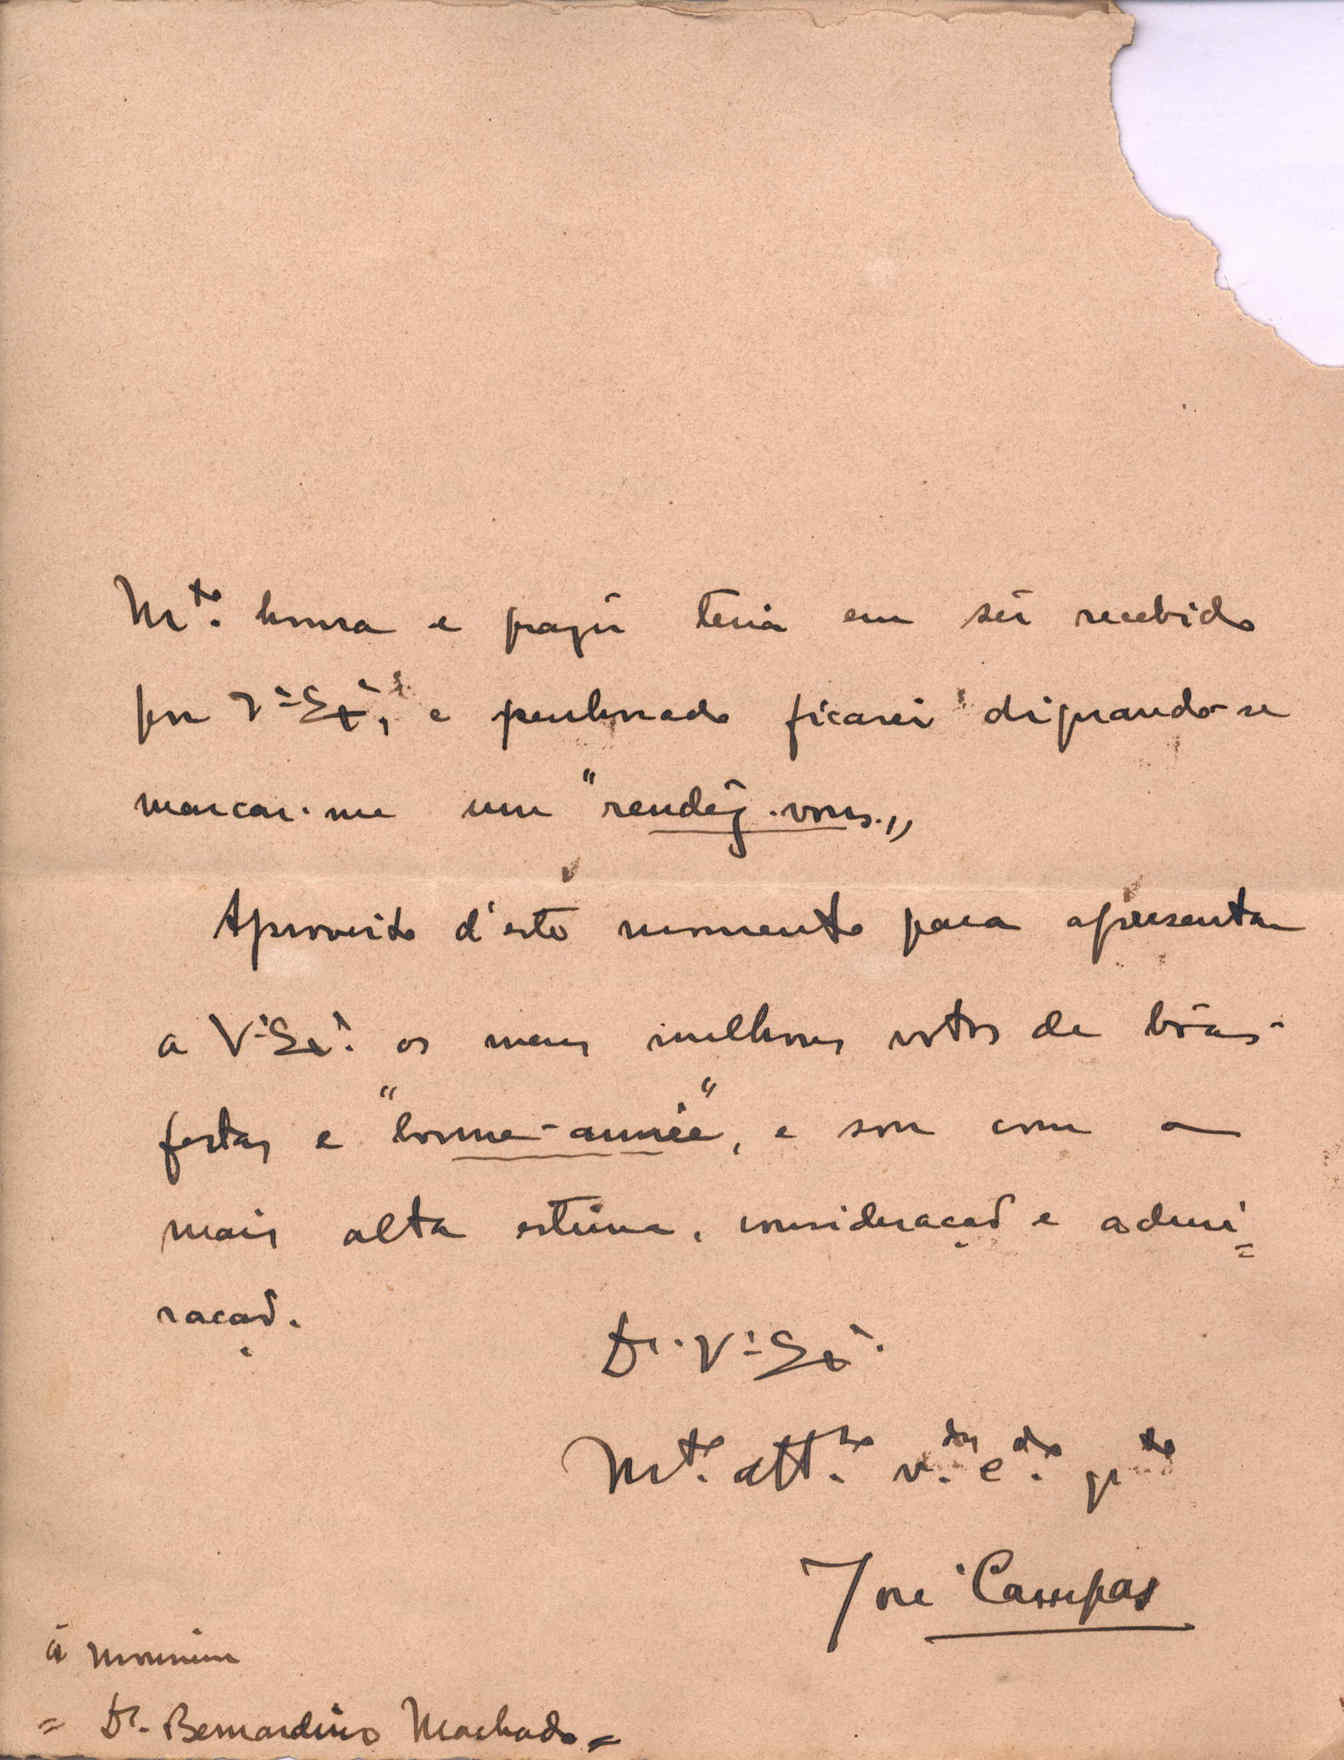 Mto. honra e prazer teria em ser recebido
por Vª Exª, e penhorado ficarei dignando-se
marcar-me um "rendêz-vous.„
Aproveito d'este momento para apresentar
a Vª Exª. os meus melhores votos de bôas-
festas e "bonne-année", e sou com a
mais alta estima, consideração e admi=
ração.
De. Vª Exª.
Mto. attº. vdor. e do. gto
José Campas
à monsieur
= Dr. Bernardino Machado =